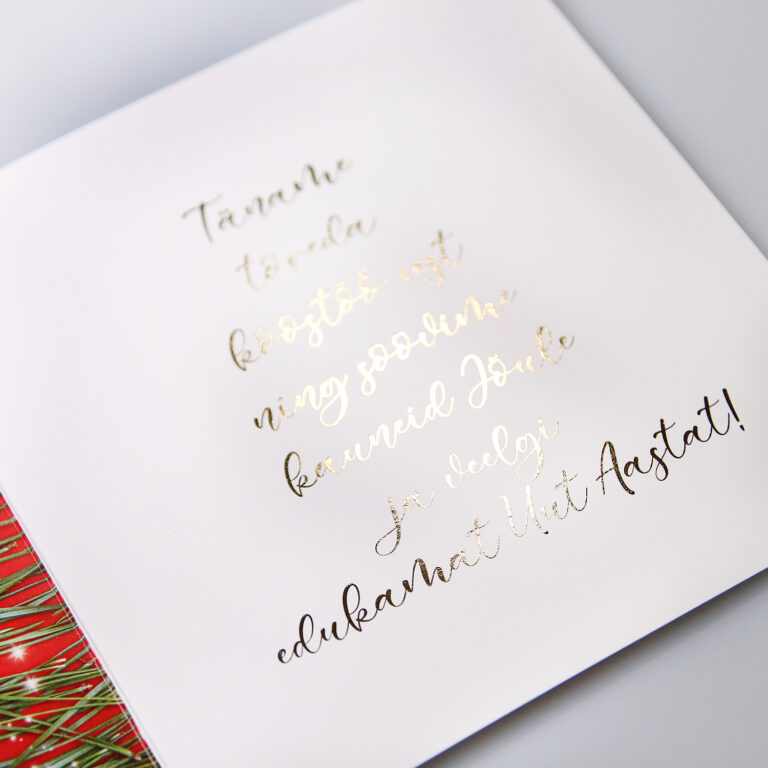 Täname
toreda
koostöö eest
ning soovime
kauneid Jõule
ja veelgi
edukamat Uut Aastat!